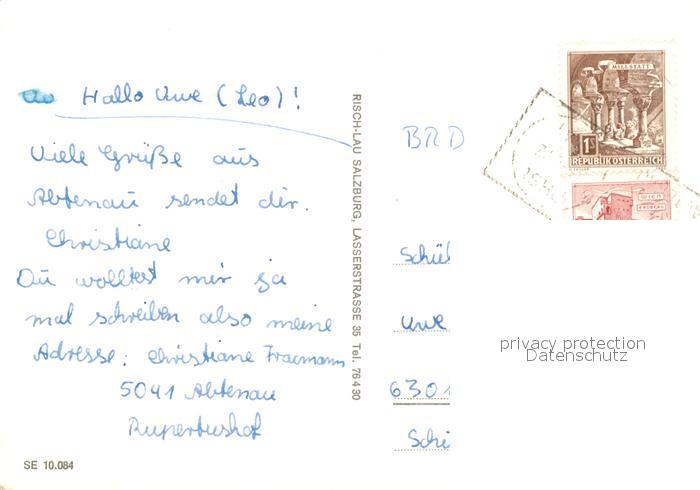 Hallo Uwe (Leo)!
Viele Grüße aus
Abtenau sendet dir.
Christiane
Du wolltest mir ja
mal schreiben also meine
Adresse: Christiane
5041 Abtenau
Rupertushof
SE 10.084
RISCH-LAU SALZBURG, LASSERSTRASSE 35 Tel. 76430
BRD
MILLSTATT
1S
REPUBLIK ÖSTERREICH
WIEN
ERDBERG
Schül
Uwe
6301
Schi
privacy protection
Datenschutz